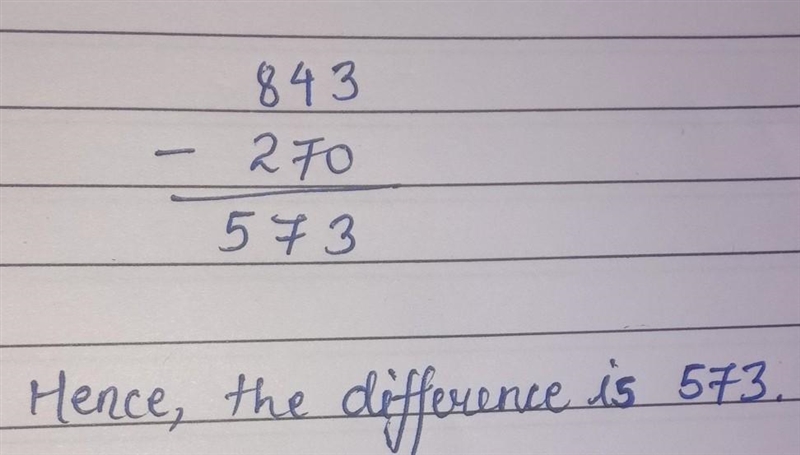 843
- 270
573
Hence, the difference is 573.